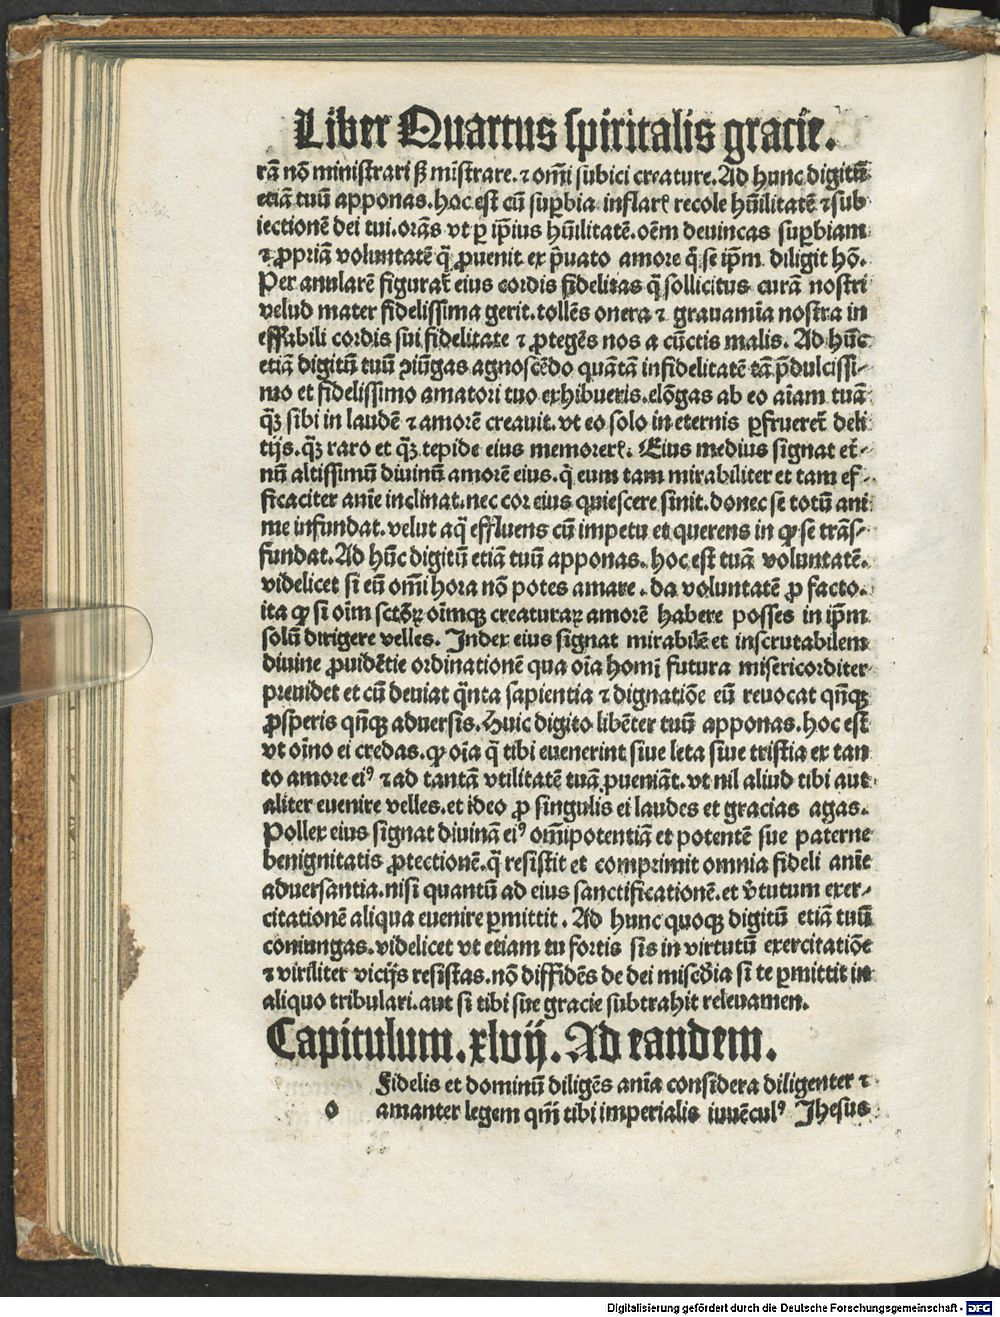 Liber Quartus spiritalis gracie.
rā nō ministrari sʒ mīstrare. ⁊ om̄i subici creature. Ad hunc digitū
etiā tuū apponas. hoc est cū supbia inflarꝭ recole hūilitatē ⁊ sub
iectionē dei tui. orās vt ꝑ ip̄ius hūilitatē. oēm deuincas supbiam
⁊ ꝓpriā voluntatē q̄ ꝓuenit ex p̄uato amore q̄ se ip̄m diligit hō.
Per annularē figurat̄ eius cordis fidelitas q̄ sollicitus curā nostri
velud mater fidelissima gerit. tollēs onera ⁊ grauamīa nostra in
effabili cordis sui fidelitate ⁊ ꝓtegēs nos a cūctis malis. Ad hūc
etiā digitū tuū ꝯiūgas agnoscēdo quātā infidelitatē tā p̄dulcissi-
mo et fidelissimo amatori tuo exhibueris. elōgas ab eo aīam tuā
q̄ʒ sibi in laudē ⁊ amorē creauit. vt eo solo in eternis ꝑfrueret̄ deli
tijs. q̄ʒ raro et q̄ʒ tepide eius memorerꝭ. Eius medius signat et̄-
nū altissimū diuinū amorē eius. q̄ eum tam mirabiliter et tam ef-
ficaciter anīe inclinat. nec cor eius quiescere sinit. donec se totū ani
me infundat. velut aq̄ effluens cū impetu et querens in qͦ se trās-
fundat. Ad hūc digitū etiā tuū apponas. hoc est tuā voluntatē.
videlicet si eū om̄i hora nō potes amare. da voluntatē ꝓ facto.
ita ꝙ si oīm sctōꝝ oīmqꝫ creaturaꝝ amorē habere posses in ip̄m
solū dirigere velles. Index eius signat mirabilē et inscrutabilem
diuine ꝓuidētie ordinationē qua oīa homī futura misericorditer
preuidet et cū deuiat q̄nta sapientia ⁊ dignatiōe eū reuocat qn̄qꝫ
ꝓsperis qn̄qꝫ aduersis. Huic digito libēter tuū apponas. hoc est
vt oīno ei credas. ꝙ oīa q̄ tibi euenerint siue leta siue tristia ex tan
to amore eiꝰ ⁊ ad tantā vtilitatē tuā ꝓueniāt. vt nil aliud tibi aut
aliter euenire velles. et ideo ꝓ singulis ei laudes et gracias agas.
Pollex eius signat diuinā eiꝰ om̄ipotentiā et potentē sue paterne
benignitatis ꝓtectionē. q̄ resistit et comprimit omnia fideli anīe
aduersantia. nisi quantū ad eius sanctificationē. et v̄tutum exer-
citationē aliqua euenire ꝑmittit. Ad hunc quoqꝫ digitū etiā tuū
coniungas. videlicet vt etiam tu fortis sis in virtutū exercitatiōe
⁊ viriliter vicijs resistas. nō diffidēs de dei mis̄cdia si te ꝑmittit in
aliquo tribulari. aut si tibi sue gracie subtrahit releuamen.
Capitulum. xlvij. Ad eandem.
Fidelis et dominū diligēs anīa considera diligenter ⁊
o amanter legem qm̄ tibi imperialis iuuēculꝰ Jhesus
Digitalisierung gefördert durch die Deutsche Forschungsgemeinschaft - DFG